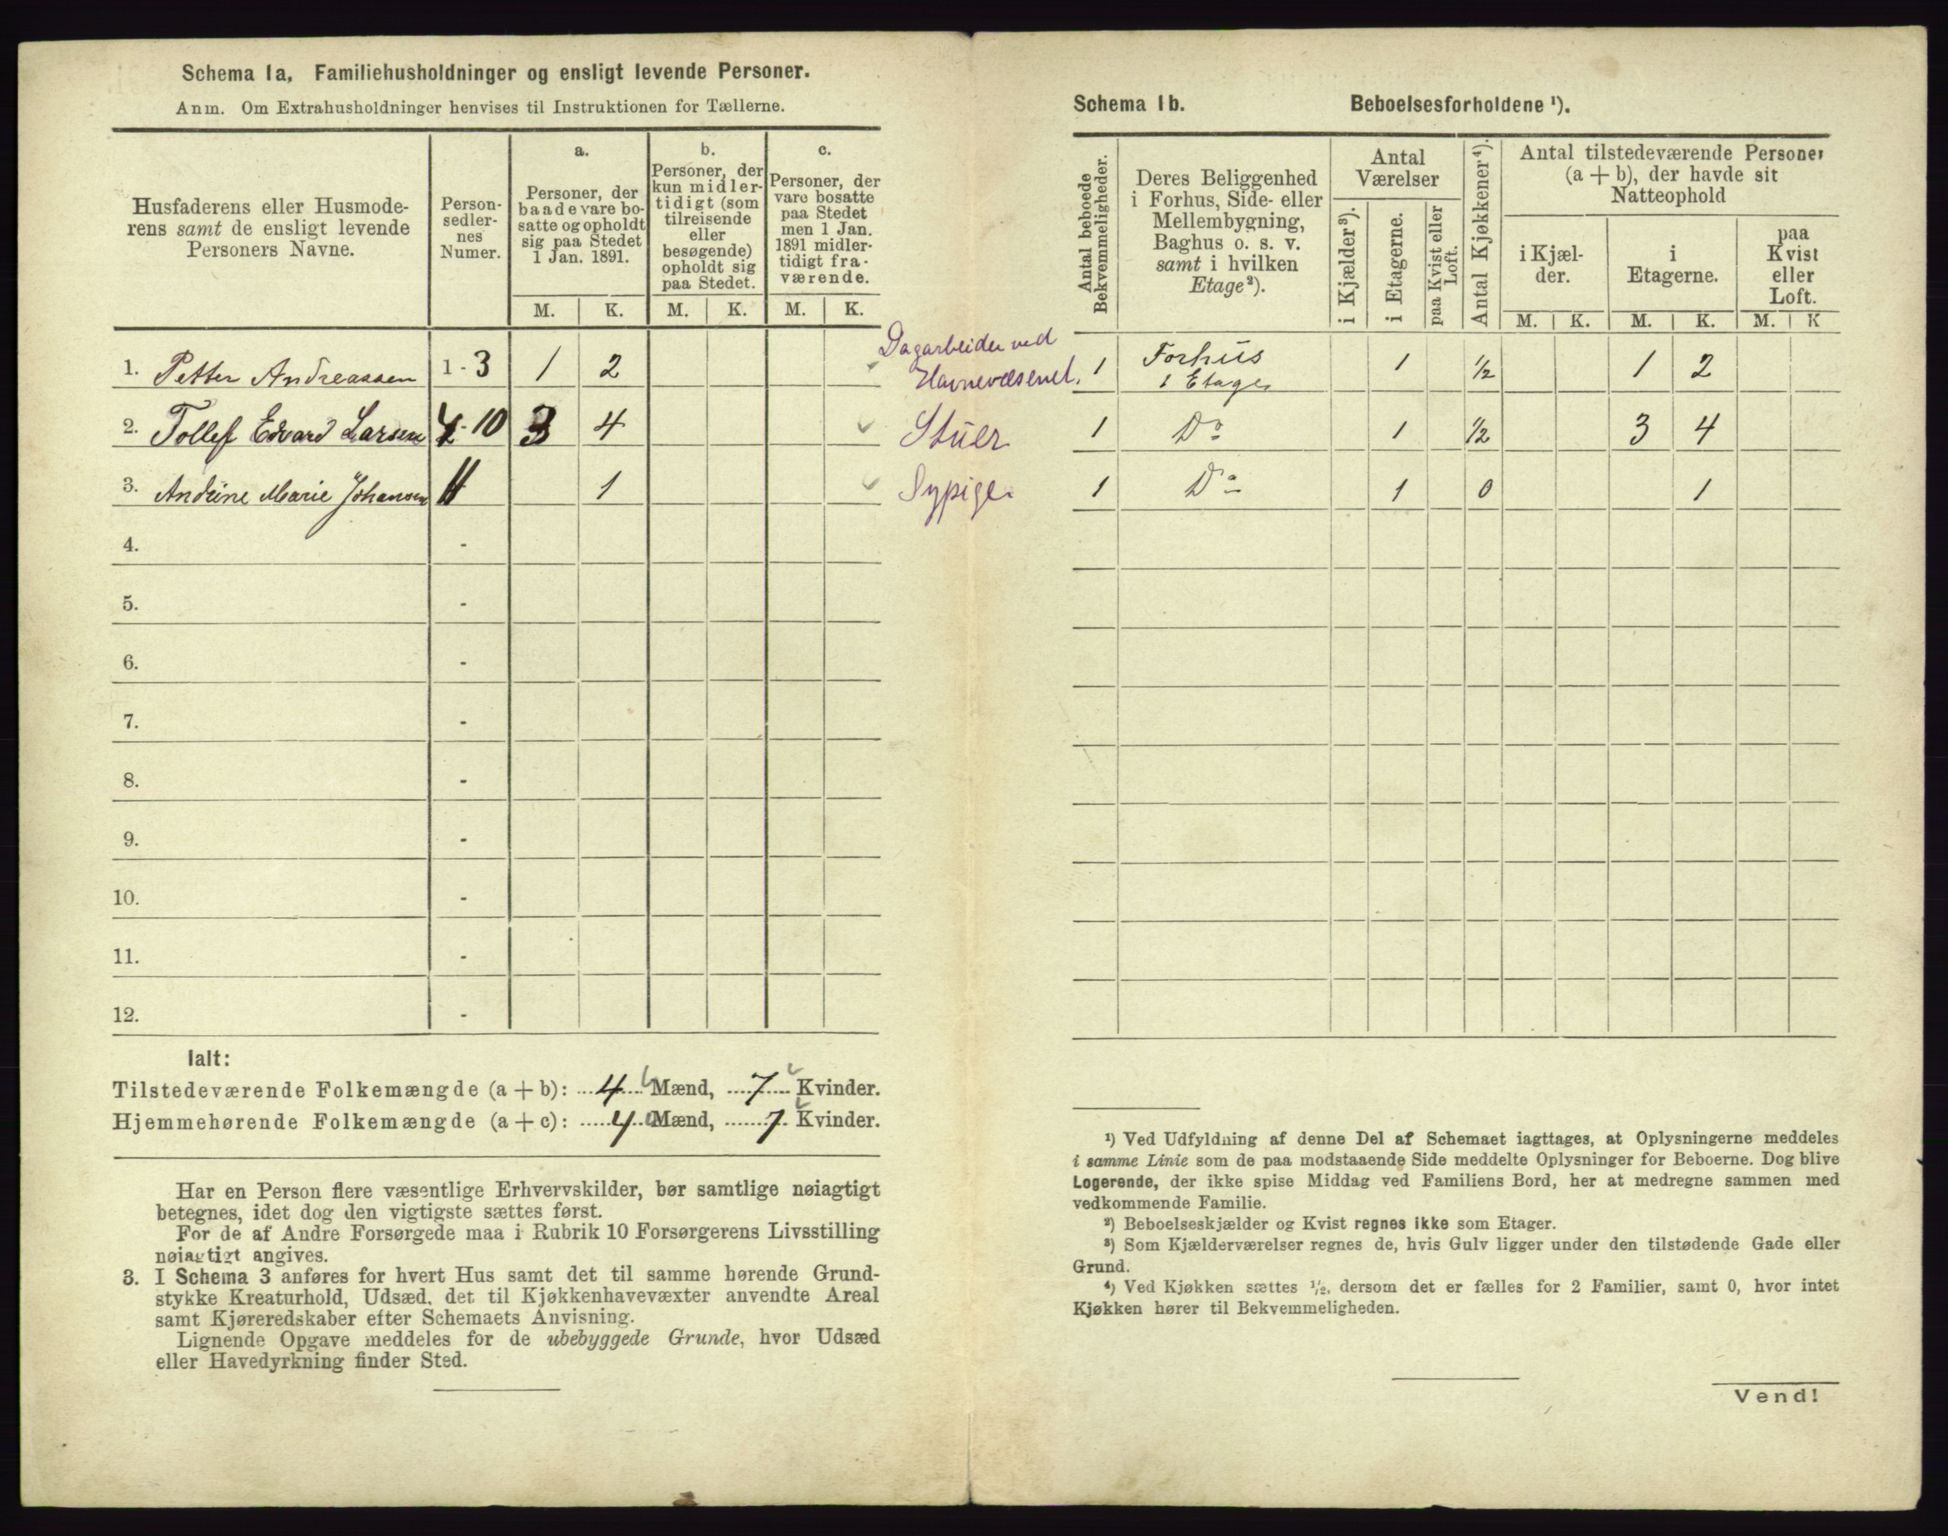 Schema 1a, Familiehusholdninger og ensligt levende Personer.
Anm. Om Extrahusholdninger henvises til Instruktionen for Tællerne.
Husfaderens eller Husmode-
rens samt de ensligt levende
Personers Navne.
Person-
sedler-
nes
Numer.
a.
Personer, der
baade vare bo-
satte og opholdt
sig paa Stedet
1 Jan. 1891.
b.
Personer, der
kun midler-
tidigt (som
tilreisende
eller
besøgende)
opholdt sig
paa Stedet.
c.
Personer, der
vare bosatte
paa Stedet
men 1 Jan.
1891 midler-
tidigt fra-
værende.
M. K. M. K. M. K.
1. Petter Andreassen 1 - 3 1 2 Dagarbeider ved
Havnevæsenet.
2. Tollef Edvard Larsen 4 - 10 3 4 Stuer
3. Andrine Marie Johansen 11 1 Sypige
4. -
5. -
6. -
7. -
8. -
9. -
10. -
11. -
12. -
Ialt:
Tilstedeværende Folkemængde (a + b): 4 Mænd, 7 Kvinder.
Hjemmehørende Folkemængde (a + c): 4 Mænd, 7 Kvinder.
Har en Person flere væsentlige Erhvervskilder, bør samtlige nøiagtigt
betegnes, idet dog den vigtigste sættes først.
For de af Andre Forsørgede maa i Rubrik 10 Forsørgerens Livsstilling
nøiagtigt angives.
3. I Schema 3 anføres for hvert Hus samt det til samme hørende Grund-
stykke Kreaturhold, Udsæd, det til Kjøkkenhavevæxter anvendte Areal
samt Kjøreredskaber efter Schemaets Anvisning.
Lignende Opgave meddeles for de ubebyggede Grunde, hvor Udsæd
eller Havedyrkning finder Sted.
Schema 1b. Beboelsesforholdene ¹).
Antal beboede
Bekvemmeligheder.
Deres Beliggenhed
i Forhus, Side- eller
Mellembygning,
Baghus o. s. v.
samt i hvilken
Etage²).
Antal
Værelser
i Kjælder³).
i Etagerne.
paa Kvist eller
Loft.
Antal Kjøkkener⁴).
Antal tilstedeværende Personer
(a + b), der havde sit
Natteophold
i Kjæl-
der.
i
Etagerne.
paa
Kvist
eller
Loft.
M. K. M. K. M. K
1 Forhus
1 Etage 1 ½ 1 2
1 Do 1 ½ 3 4
1 Do 1 0 1
¹) Ved Udfyldning af denne Del af Schemaet iagttages, at Oplysningerne meddeles
i samme Linie som de paa modstaaende Side meddelte Oplysninger for Beboerne. Dog blive
Logerende, der ikke spise Middag ved Familiens Bord, her at medregne sammen med
vedkommende Familie.
²) Beboelseskjælder og Kvist regnes ikke som Etager.
³) Som Kjælderværelser regnes de, hvis Gulv ligger under den tilstødende Gade eller
Grund.
⁴) Ved Kjøkken sættes ½, dersom det er fælles for 2 Familier, samt 0, hvor intet
Kjøkken hører til Bekvemmeligheden.
Vend!